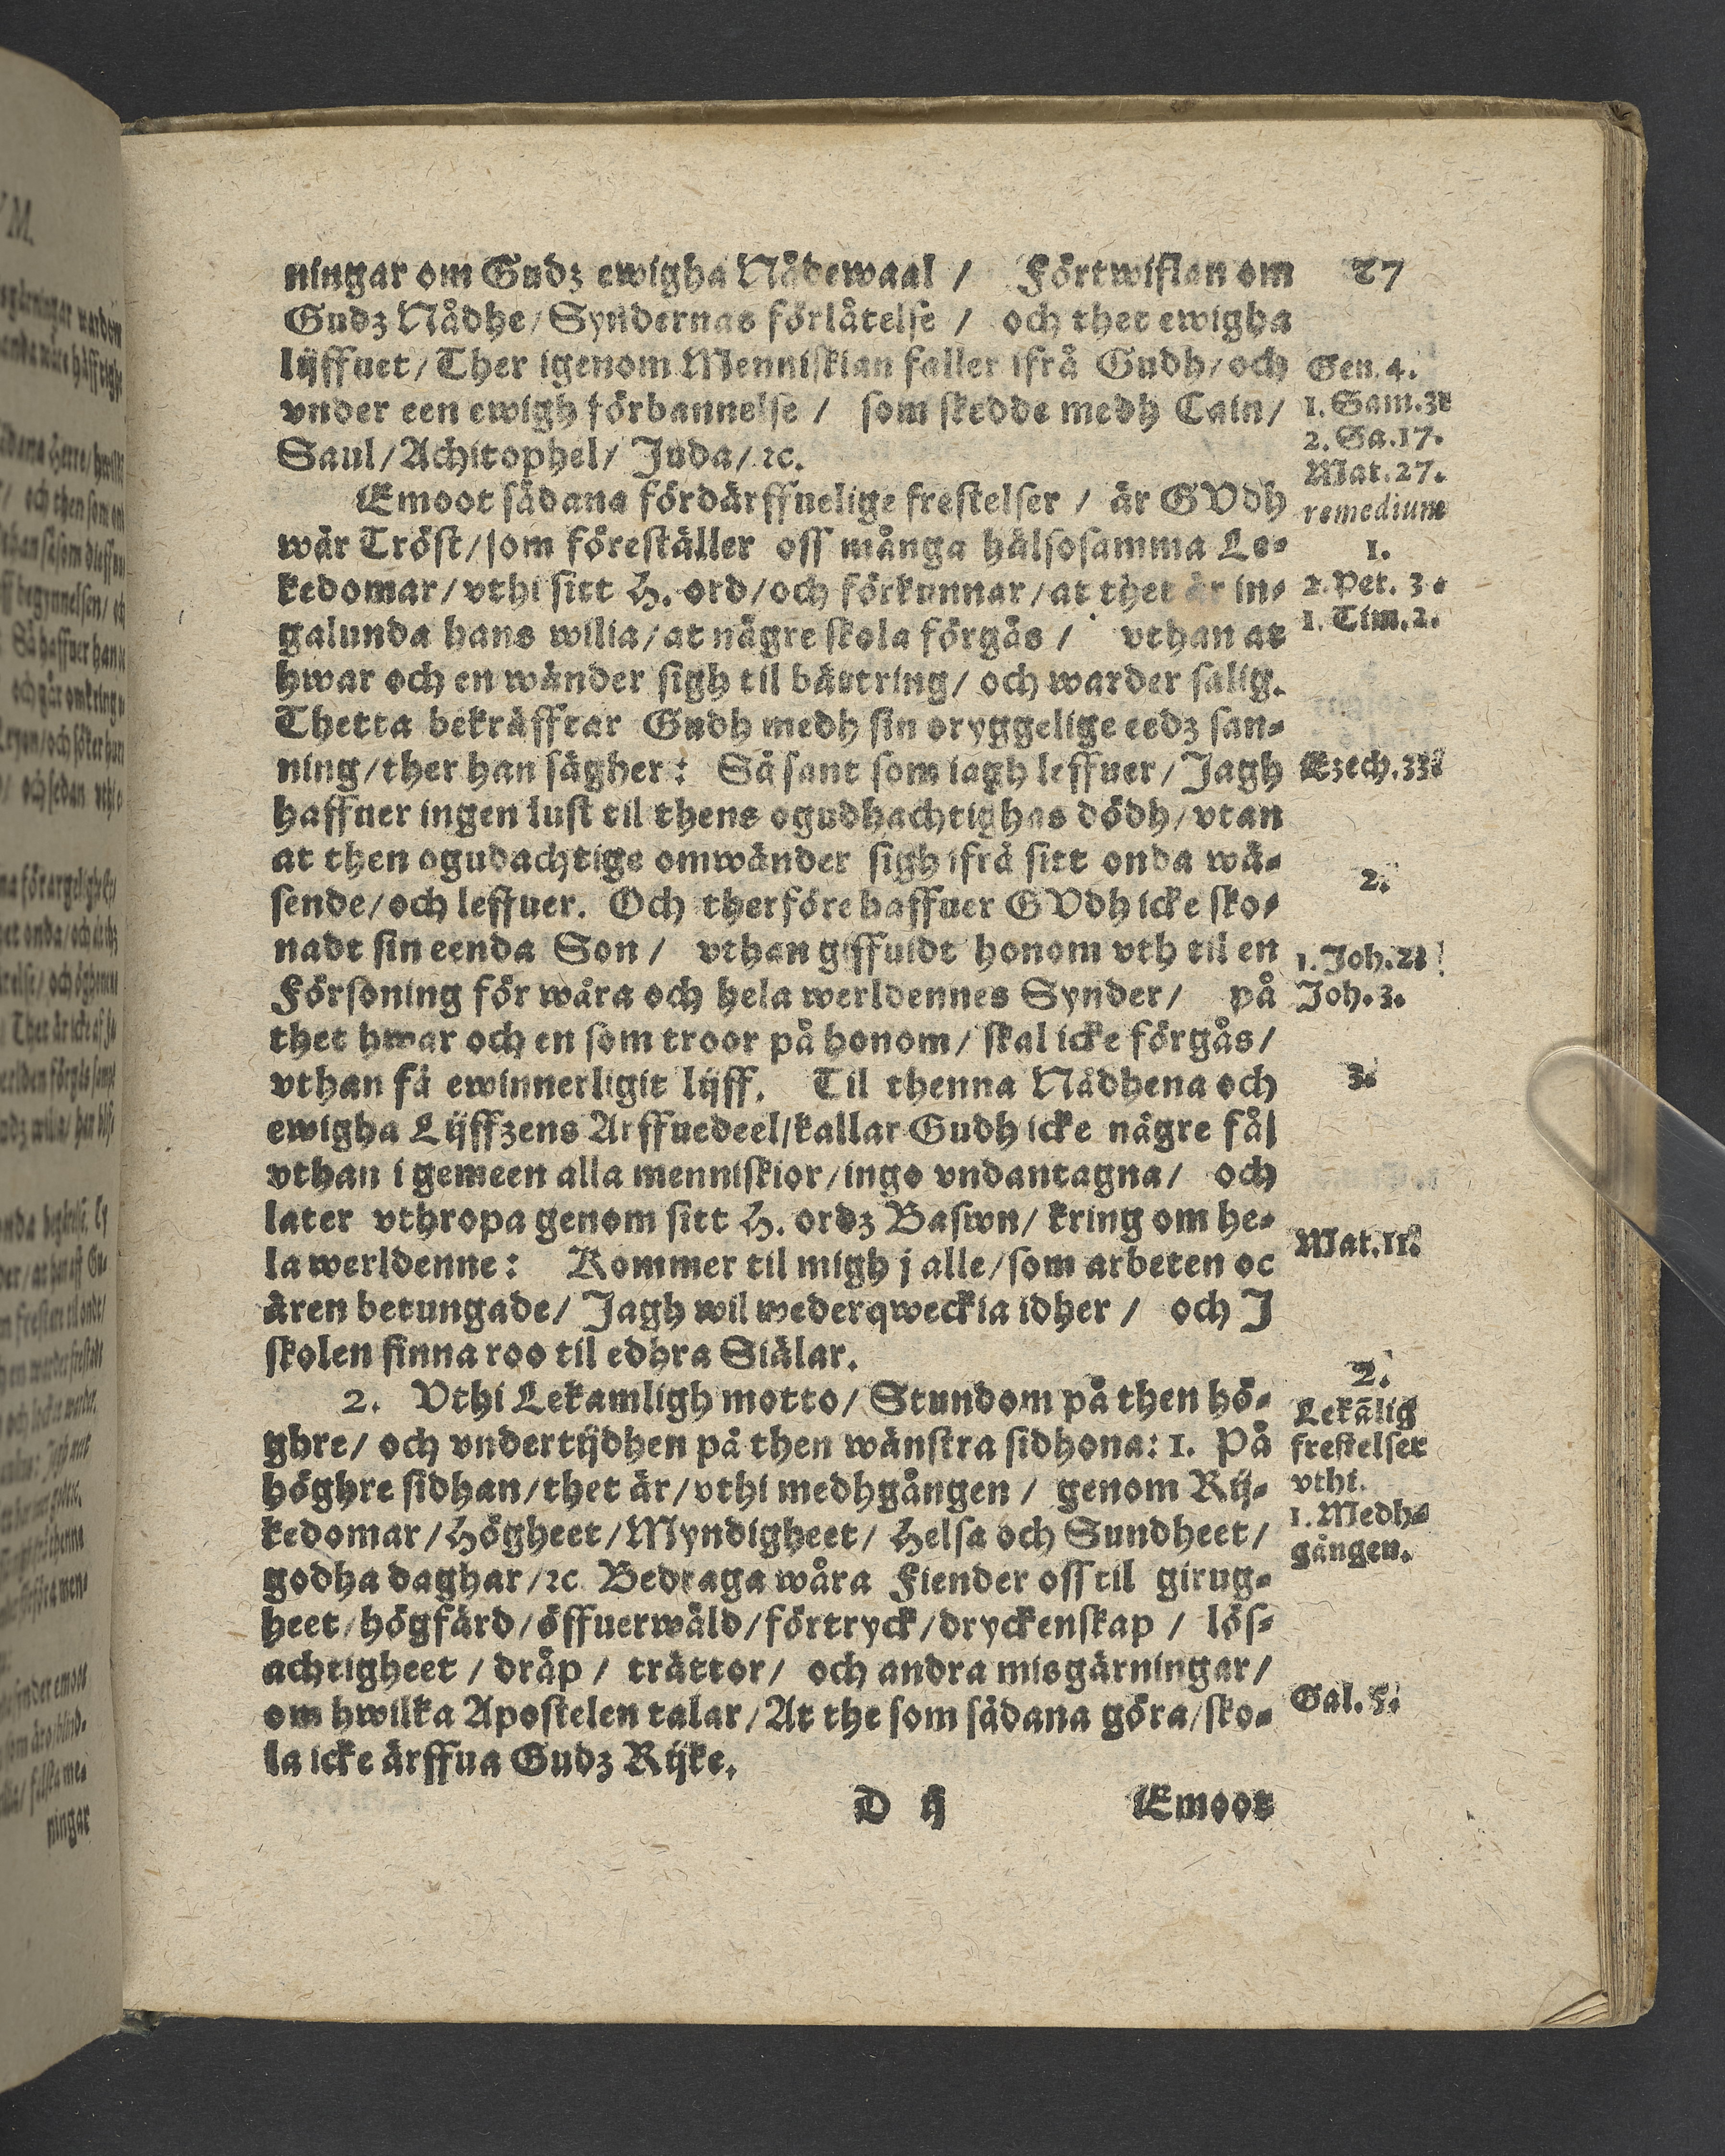 ningar om Gudz ewigha Nådewaal / Förtwiflan om
27
Gudz Nådhe/Syndernas förlåtelse / och thet ewigha
lijffuet/Ther igenom Menniskian faller ifrå Gudh/och
Gen. 4.
vnder een ewigh förbannelse / som skedde medh Cain/
1. Sam. 31
2. Sa. 17.
Saul/Achitophel/ Juda/ ꝛc.
Mat. 27.
Emoot sådana fördärffuelige frestelser / är GVdh
remedium
wår Tröst/som föreställer oss många hälsosamma Le-
1.
kedomar/vthi sitt H. ord/och förkunnar/at thet är in-
2. Pet. 3.
galunda hans wilia/at någre skola förgås / vthan at
1. Tim. 2.
hwar och en wänder sigh til bättring/ och warder salig.
Thetta bekräfftar Gudh medh sin oryggelige eedz san-
ning/ther han sägher: Så sant som iagh leffuer/Jagh
Ezech. 33.
haffuer ingen lust til thens ogudhachtighas dödh/vtan
at then ogudachtige omwänder sigh ifrå sitt onda wä-
2.
sende/och leffuer. Och therföre haffuer GVdh icke sko-
nadt sin eenda Son / vthan giffuidt honom vth til en
1. Joh. 2.
Försoning för wåra och hela werldennes Synder/ på
Joh. 3.
thet hwar och en som troor på honom/ skal icke förgås/
vthan få ewinnerligit lijff. Til thenna Nådhena och
3.
ewigha Lijffzens Arffuedeel/kallar Gudh icke någre få/
vthan i gemeen alla menniskior/ingo vndantagna/ och
later vthropa genom sitt H. ordz Baswn/ kring om he-
Mat. 11.
la werldenne: Kommer til migh j alle/som arbeten oc
ären betungade/ Jagh wil wederqweckia idher / och J
skolen finna roo til edhra Siälar.
2.
2. Vthi Lekamligh motto/ Stundom på then hö-
Lekālig
ghre/ och vndertijdhen på then wänstra sidhona: 1. På
frestelser
höghre sidhan/thet är/vthi medhgången / genom Rij-
vthi.
1. Medh-
kedomar/Högheet/Myndigheet/ Helsa och Sundheet/
gången.
godha daghar/ꝛc. Bedraga wåra Fiender oss til girug-
heet/högfärd/öffuerwåld/förtryck/dryckenskap / lös-
achtigheet / dråp / trättor/ och andra misgärningar/
om hwilka Apostelen talar/At the som sådana göra/sko-
Gal. 5.
la icke ärffua Gudz Rijke.
D ij
Emoot